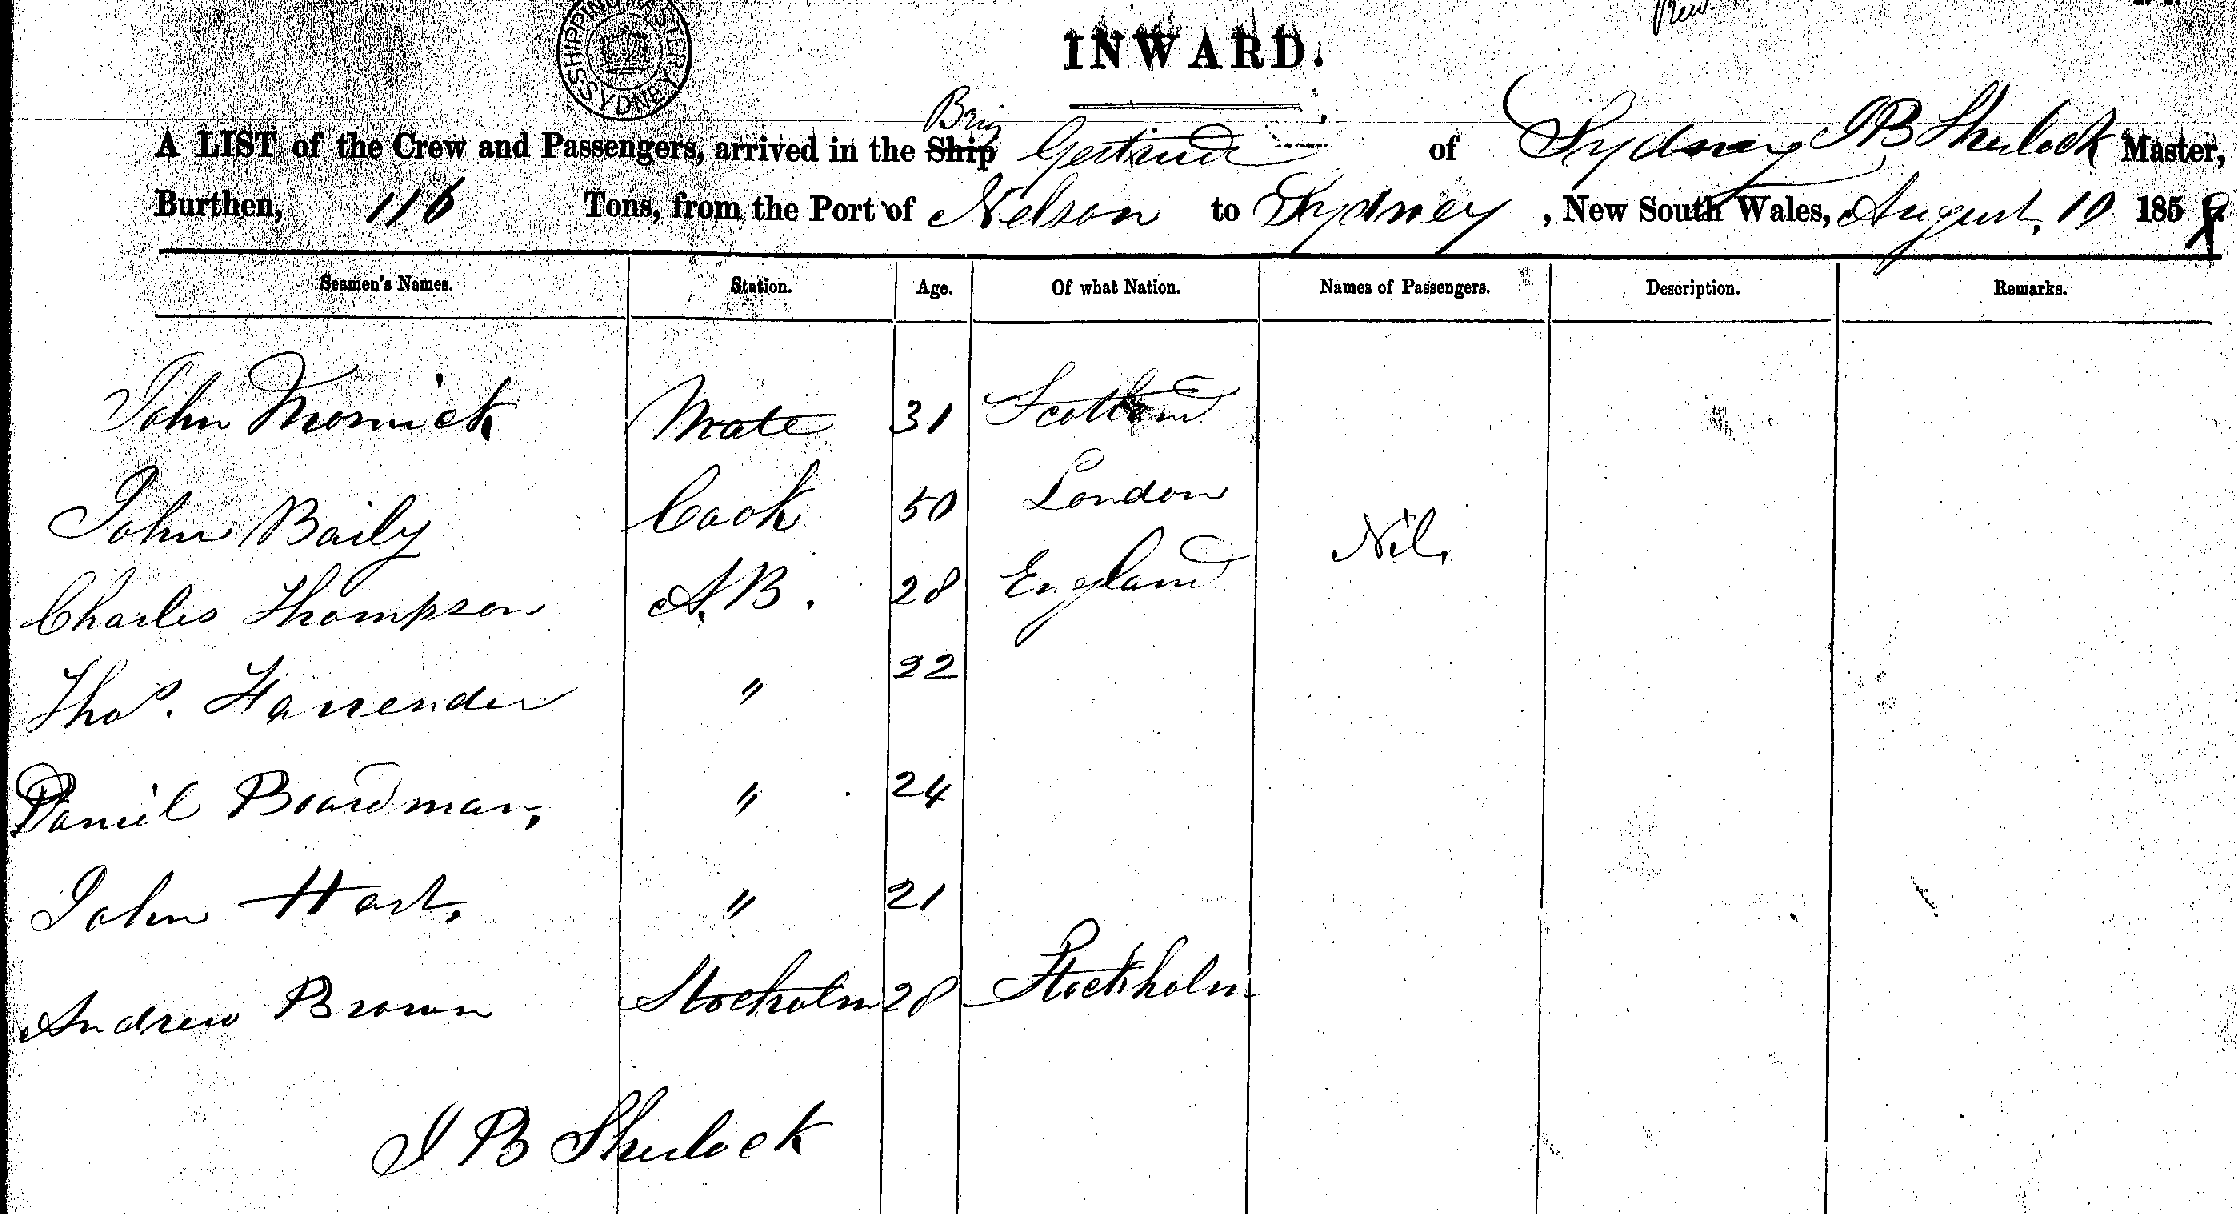 SHIPPING MASTER SYDNEY
INWARD.
Brig
A LIST of the Crew and Passengers, arrived in the Ship Gertrude of Sydney J B Sherlock Master,
Burthen, 116 Tons, from the Port of Nelson to Sydney, New South Wales, August, 19 185
Seamen's Names. Station. Age. Of what Nation. Names of Passengers. Description. Remarks.
John Mate 31 Scotland
John Baily Cook 50 London
Nil.
Charles Thompson A.B. 28 England
Thos. Harrender " 22
Daniel Boardman, " 24
John Hart. " 21
Andrew Brown Stocholm 28 Stockholm
J B Sherlock